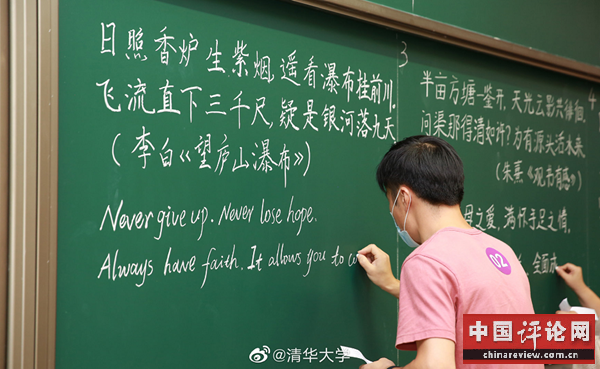 日照香炉生紫烟,遥看瀑布挂前川.
飞流直下三千尺,疑是银河落九天
(李白《望庐山瀑布》)
Never give up. Never lose hope.
Always have faith. It allows you to co
3
半亩方塘一鉴开,天光云影共徘徊.
问渠那得清如许?为有源头活水来
(朱熹《观书有感》)
母之爱,满怀手足之情,
全面成
4
02
@清华大学
中国评论网
chinareview.com